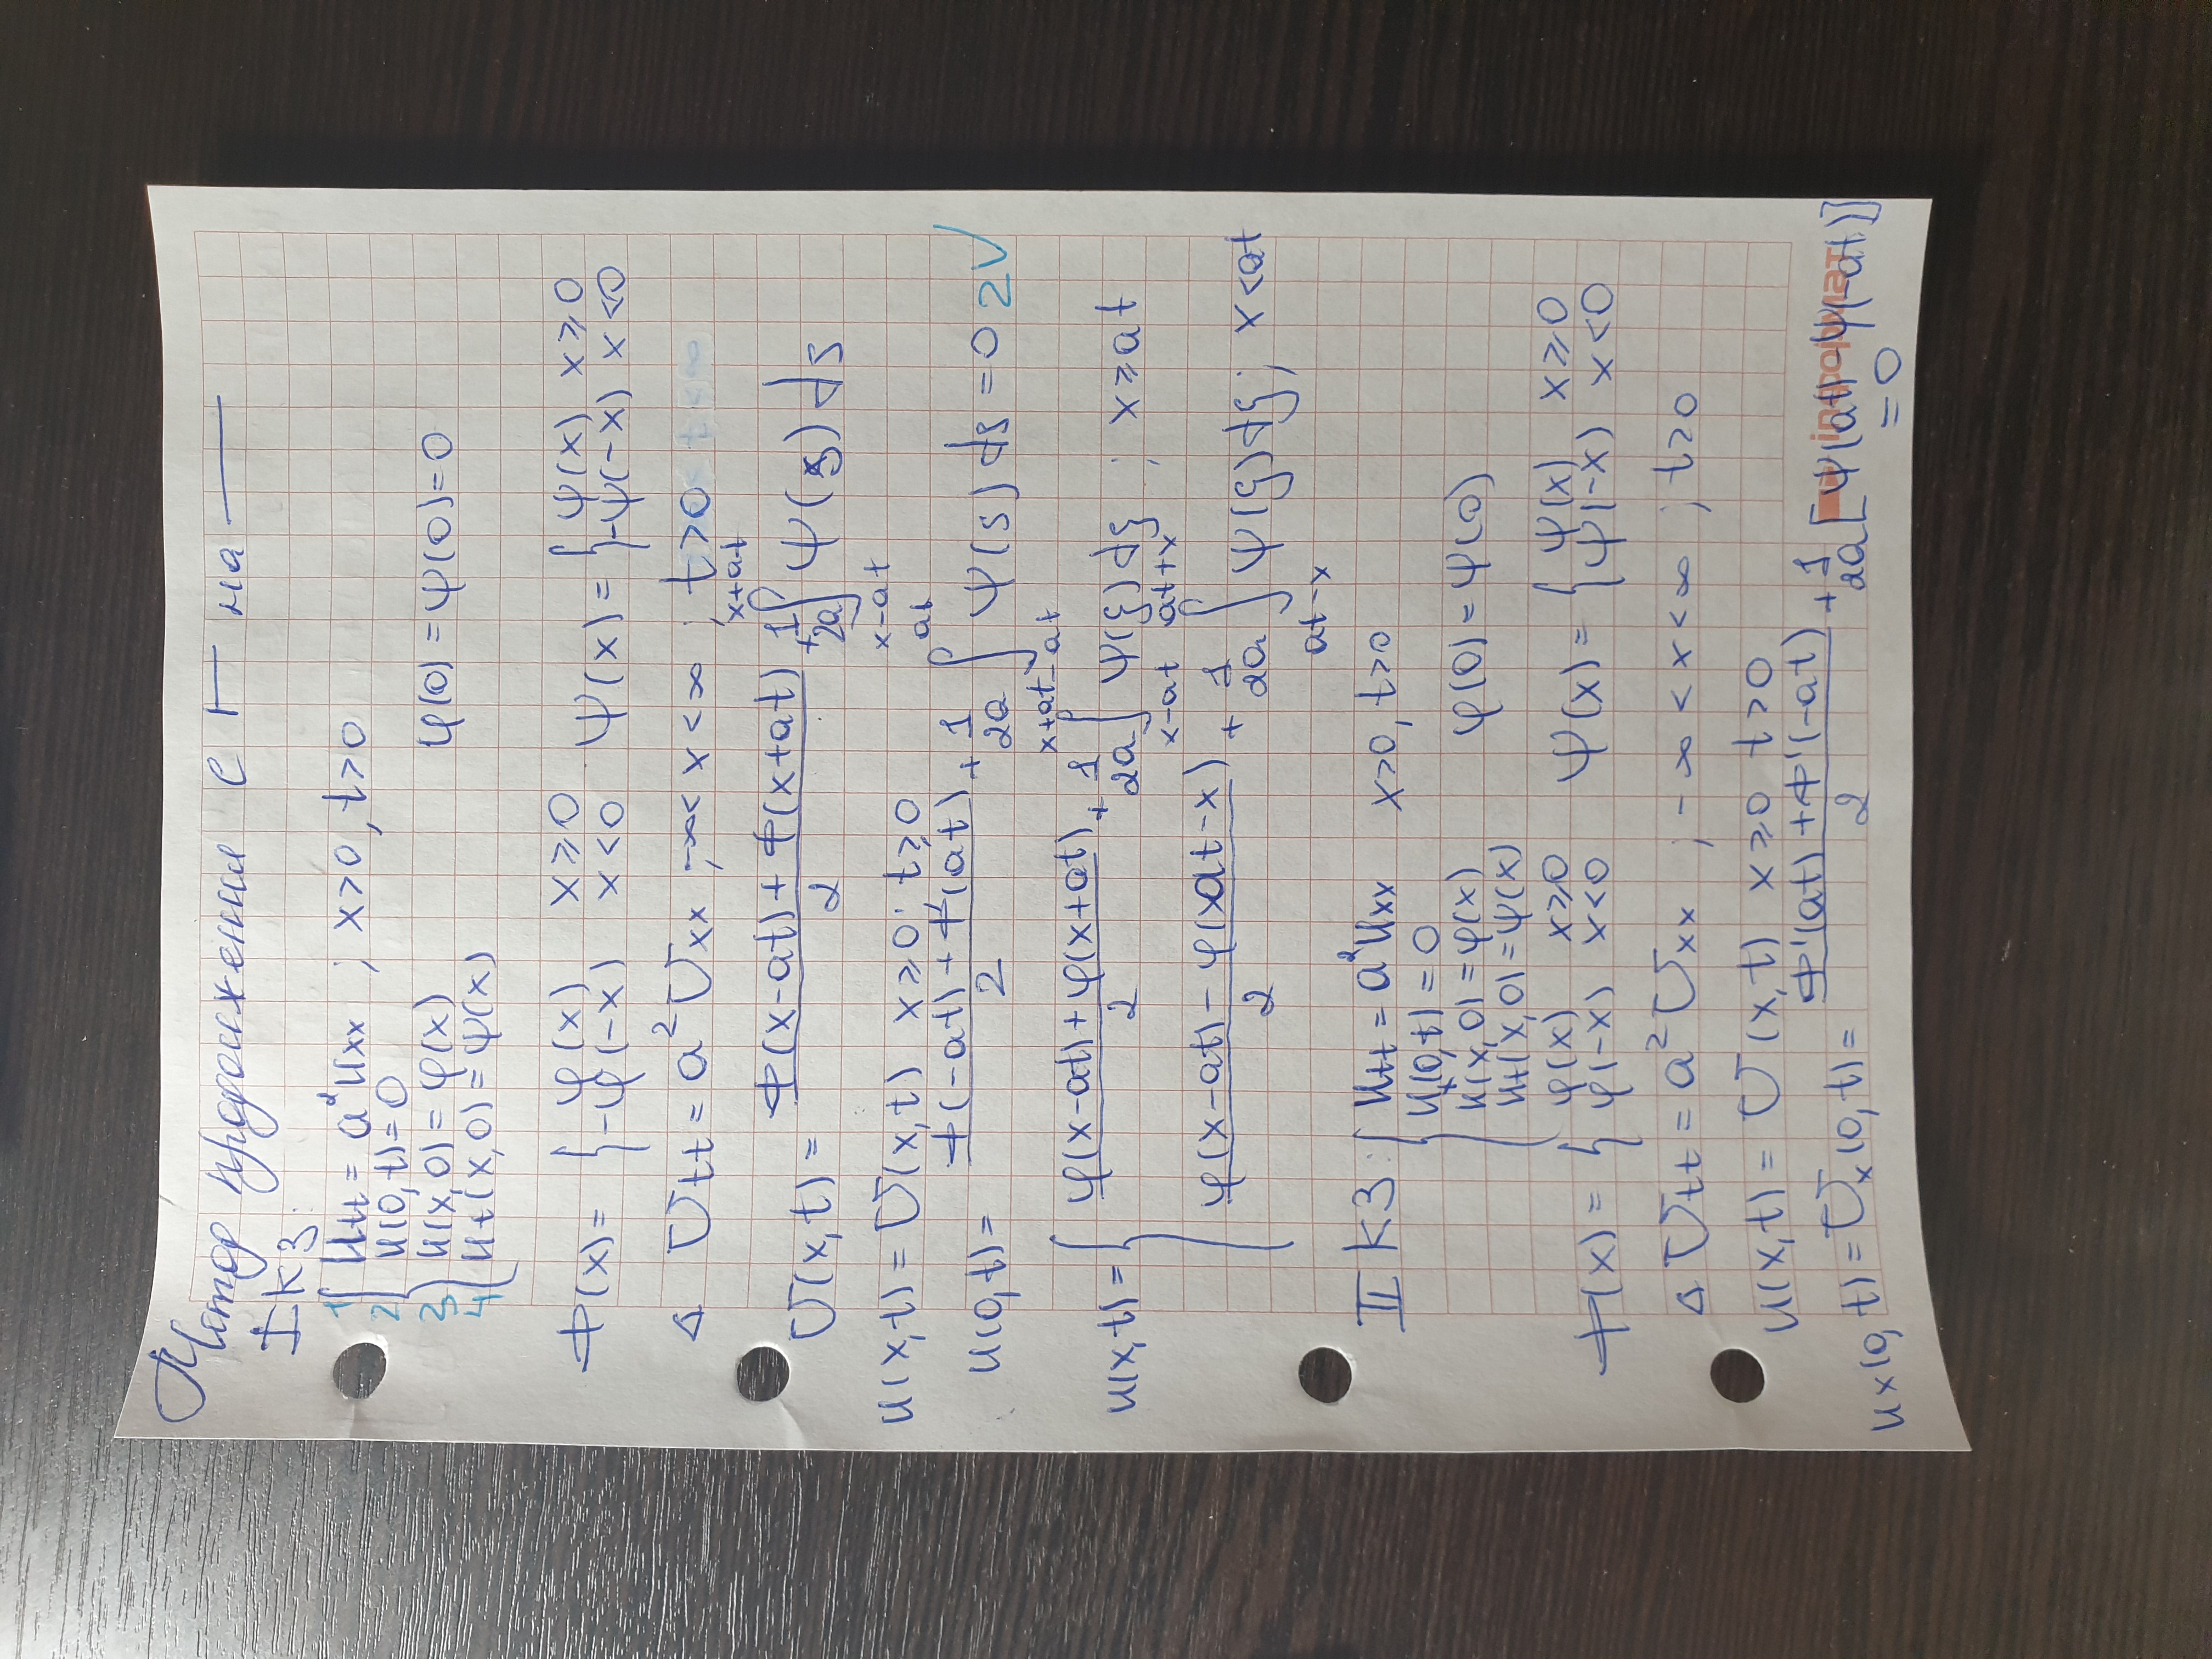 Метод продолжения с ⊢ на —
I к3:
1 { Utt = a²Uxx ; x>0, t>0
2 u(0,t)=0
3 u(x,0)=φ(x) φ(0)=ψ(0)=0
4 ut(x,0)=ψ(x)
Ф(x)= { φ(x) x≥0 -φ(-x) x<0 Ψ(x)= { ψ(x) x≥0 -ψ(-x) x<0
Δ Utt = a²Uxx ; -∞<x<∞ ; t>0
U(x,t)= (Ф(x-at)+Ф(x+at))/2 + 1/2a ∫_{x-at}^{x+at} Ψ(s)ds
u(x,t)=U(x,t) x≥0; t≥0
u(0,t)= (Ф(-at)+Ф(at))/2 + 1/2a ∫_{-at}^{at} Ψ(s)ds=0 2V
u(x,t)= { (φ(x-at)+φ(x+at))/2 + 1/2a ∫_{x-at}^{x+at} ψ(ξ)dξ ; x≥at
(φ(x-at)-φ(xat-x))/2 + 1/2a ∫_{at-x}^{at+x} ψ(ξ)dξ; x<at
II к3: { Utt = a²Uxx x>0, t>0
ux(0,t)=0
u(x,0)=φ(x) φ(0)=ψ(0)
ut(x,0)=ψ(x)
Ф(x)= { φ(x) x≥0 φ(-x) x<0 Ψ(x)= { ψ(x) x≥0 ψ(-x) x<0
Δ Utt = a²Uxx ; -∞<x<∞ ; t≥0
u(x,t)=U(x,t) x≥0 t>0
ux(0,t)=Ux(0,t)= (Ф'(at)+Ф'(-at))/2 + 1/2a [Ψ(at)-Ψ(-at)]
=0